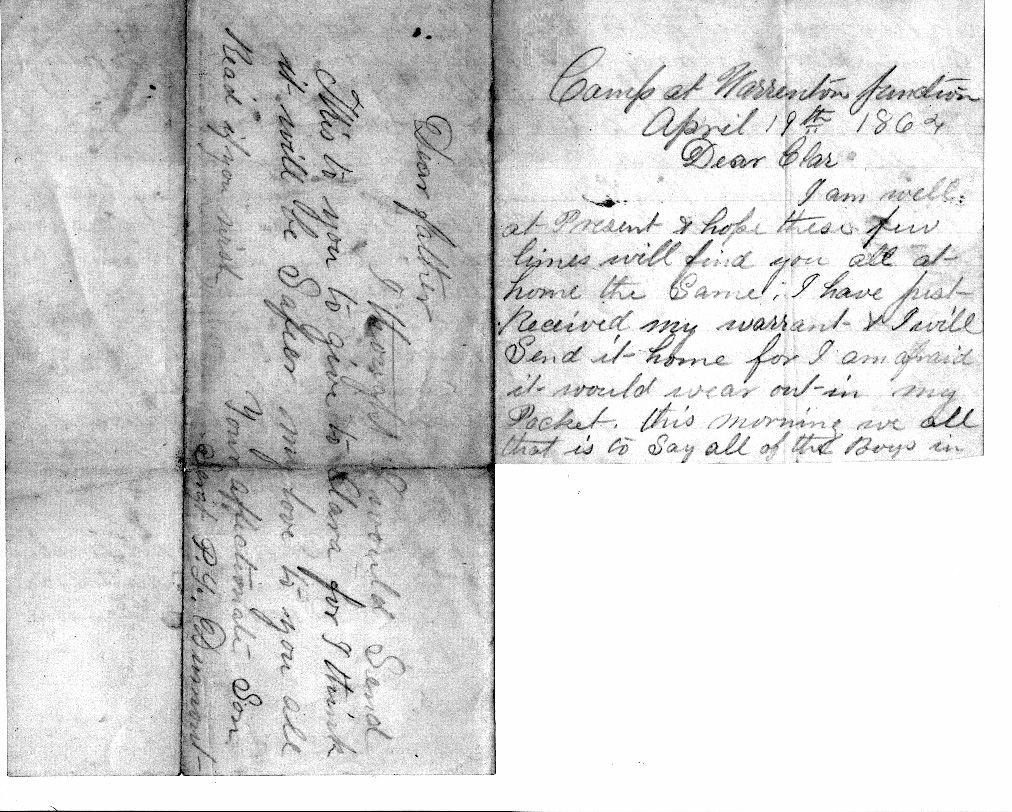 Camp at Warrenton Junction
April 19th 1864
Dear Clar
I am well
at Present & hope these few
limes will find you all at
home the Same. I have just
Received my warrant & I will
Send it home for I am afraid
it would wear out in my
Pocket. this morning we all
that is to Say all of the Boys in
Dear father
I thought I would Send
This to you to give to Clara for I think
it will be Safier my love to you all
Read if you wish Your affectionate Son
Sergt P. Y. Dunmont